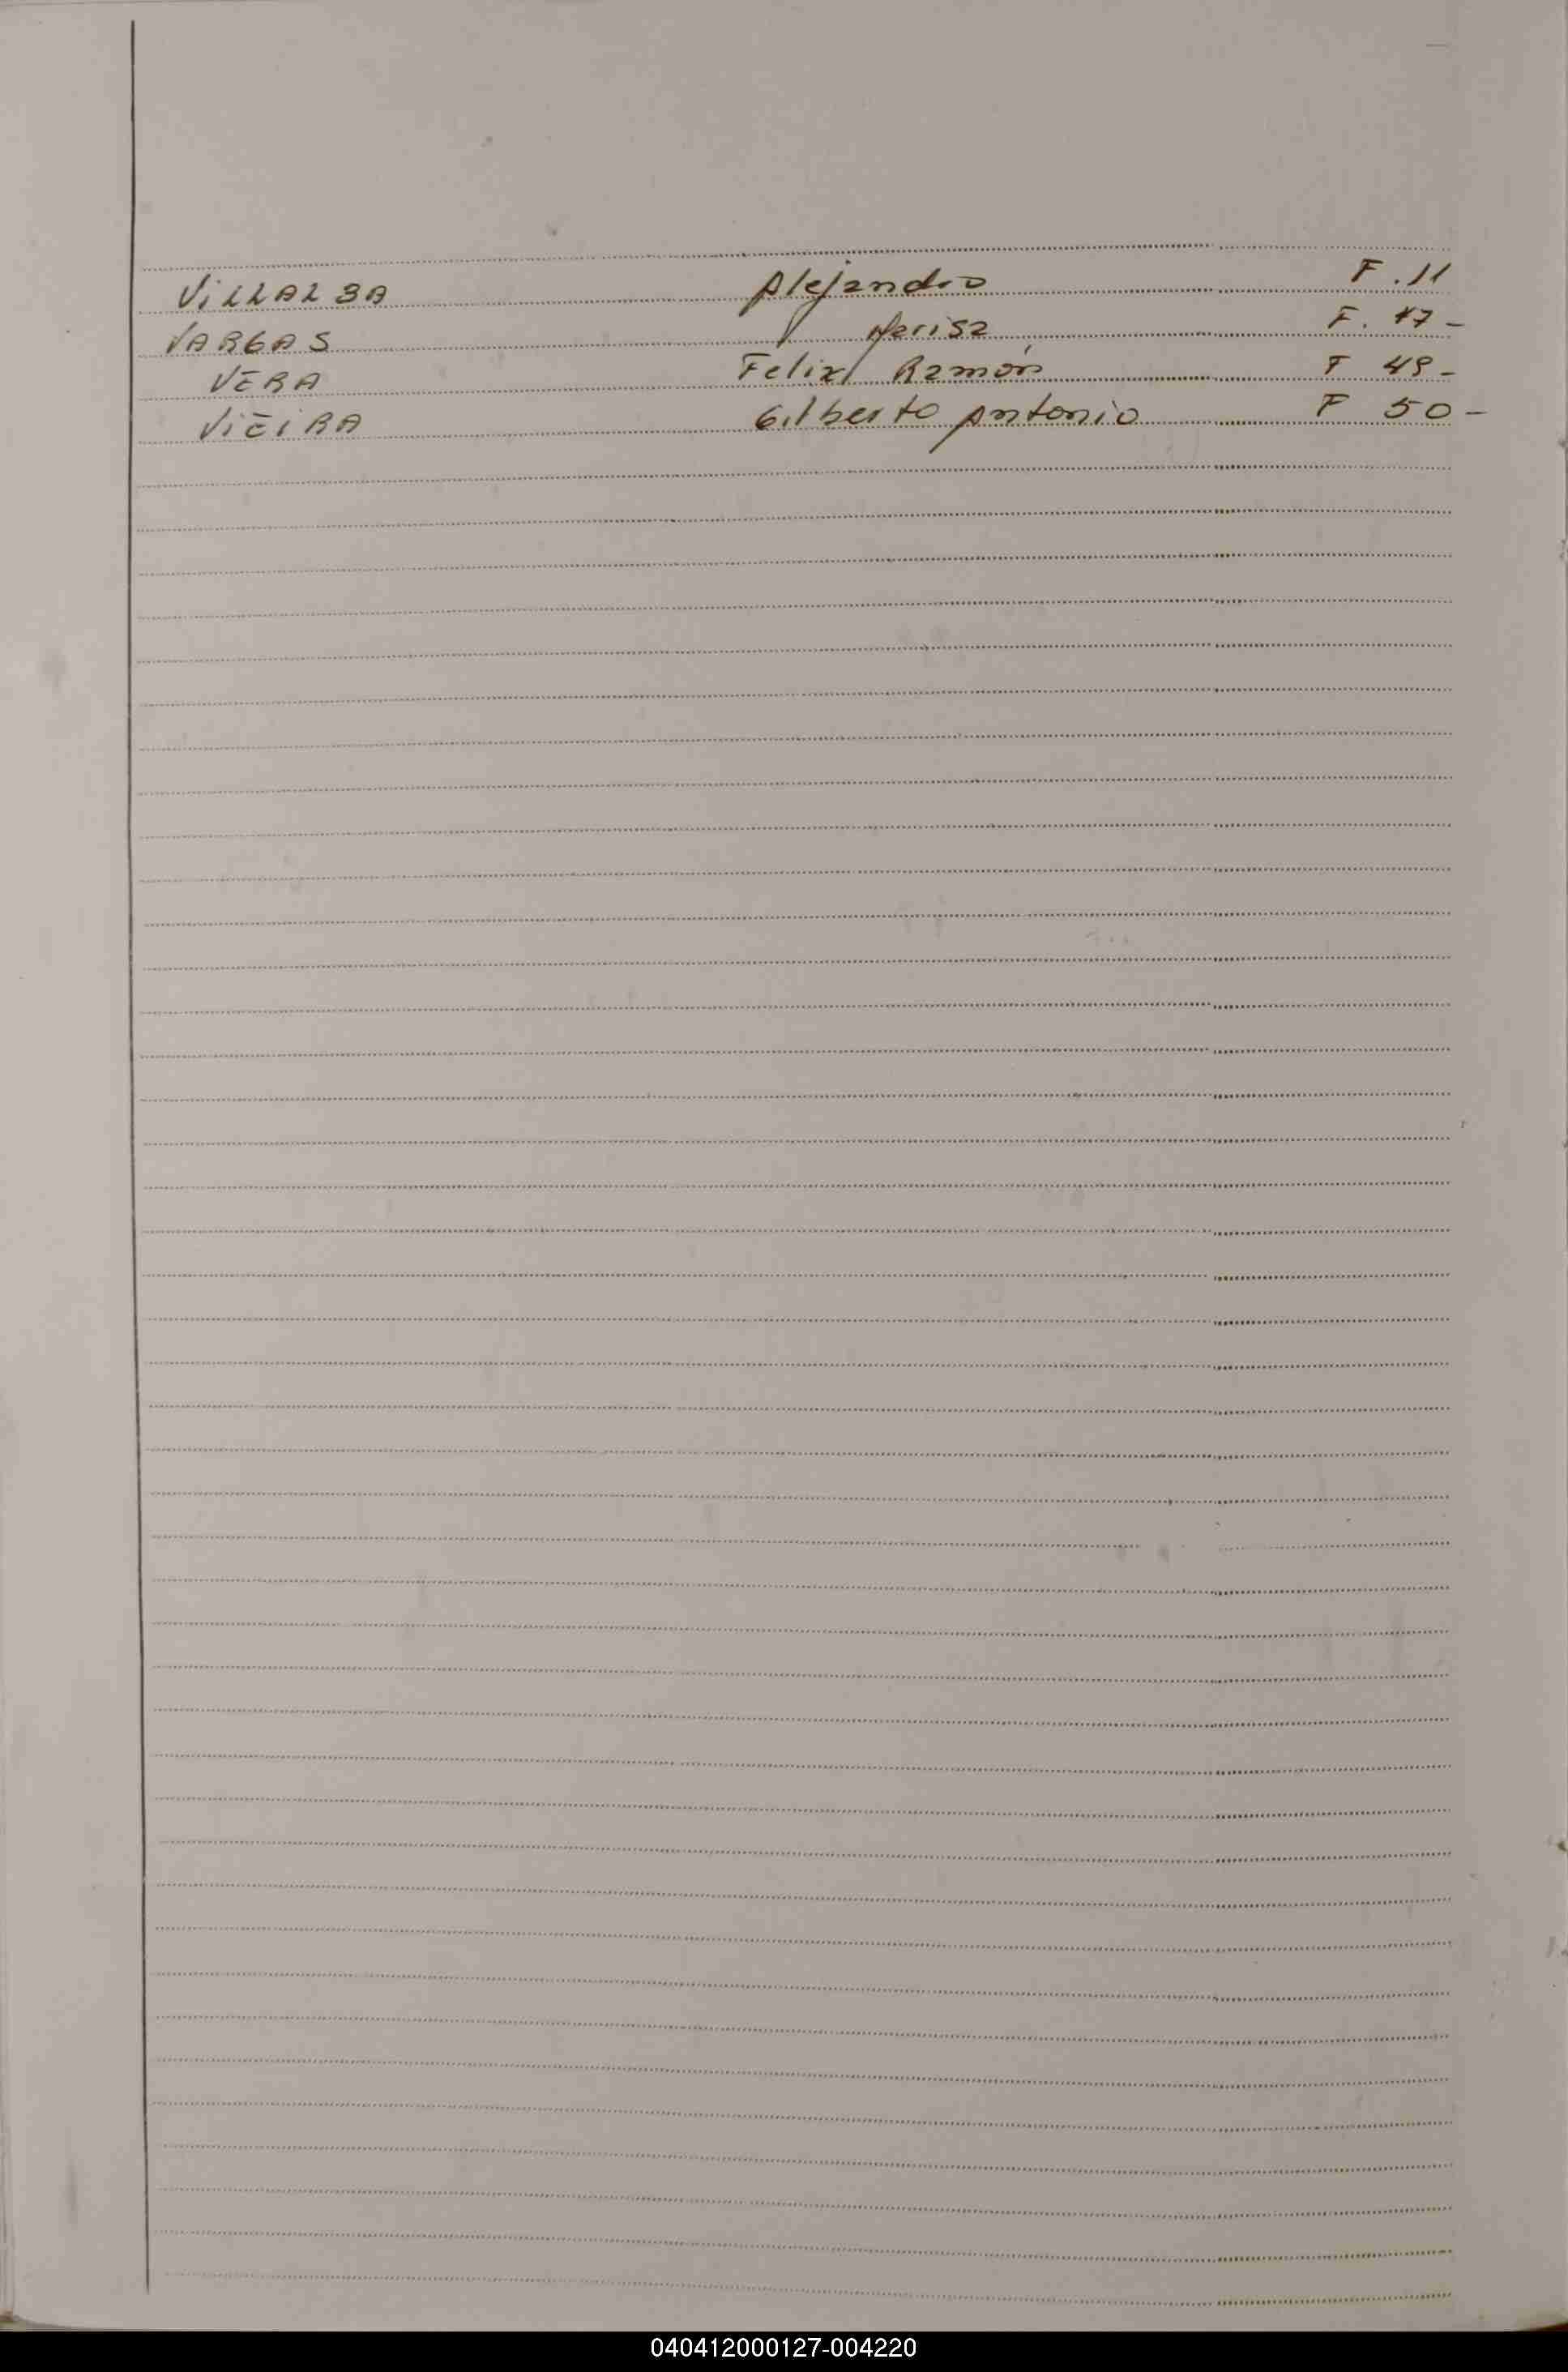 VILLALBA Alejandro F. 11
VARGAS Marisa F. 17-
VERA Felix Ramón F 49-
VIEIRA Gilberto Antonio F 50-
040412000127-004220